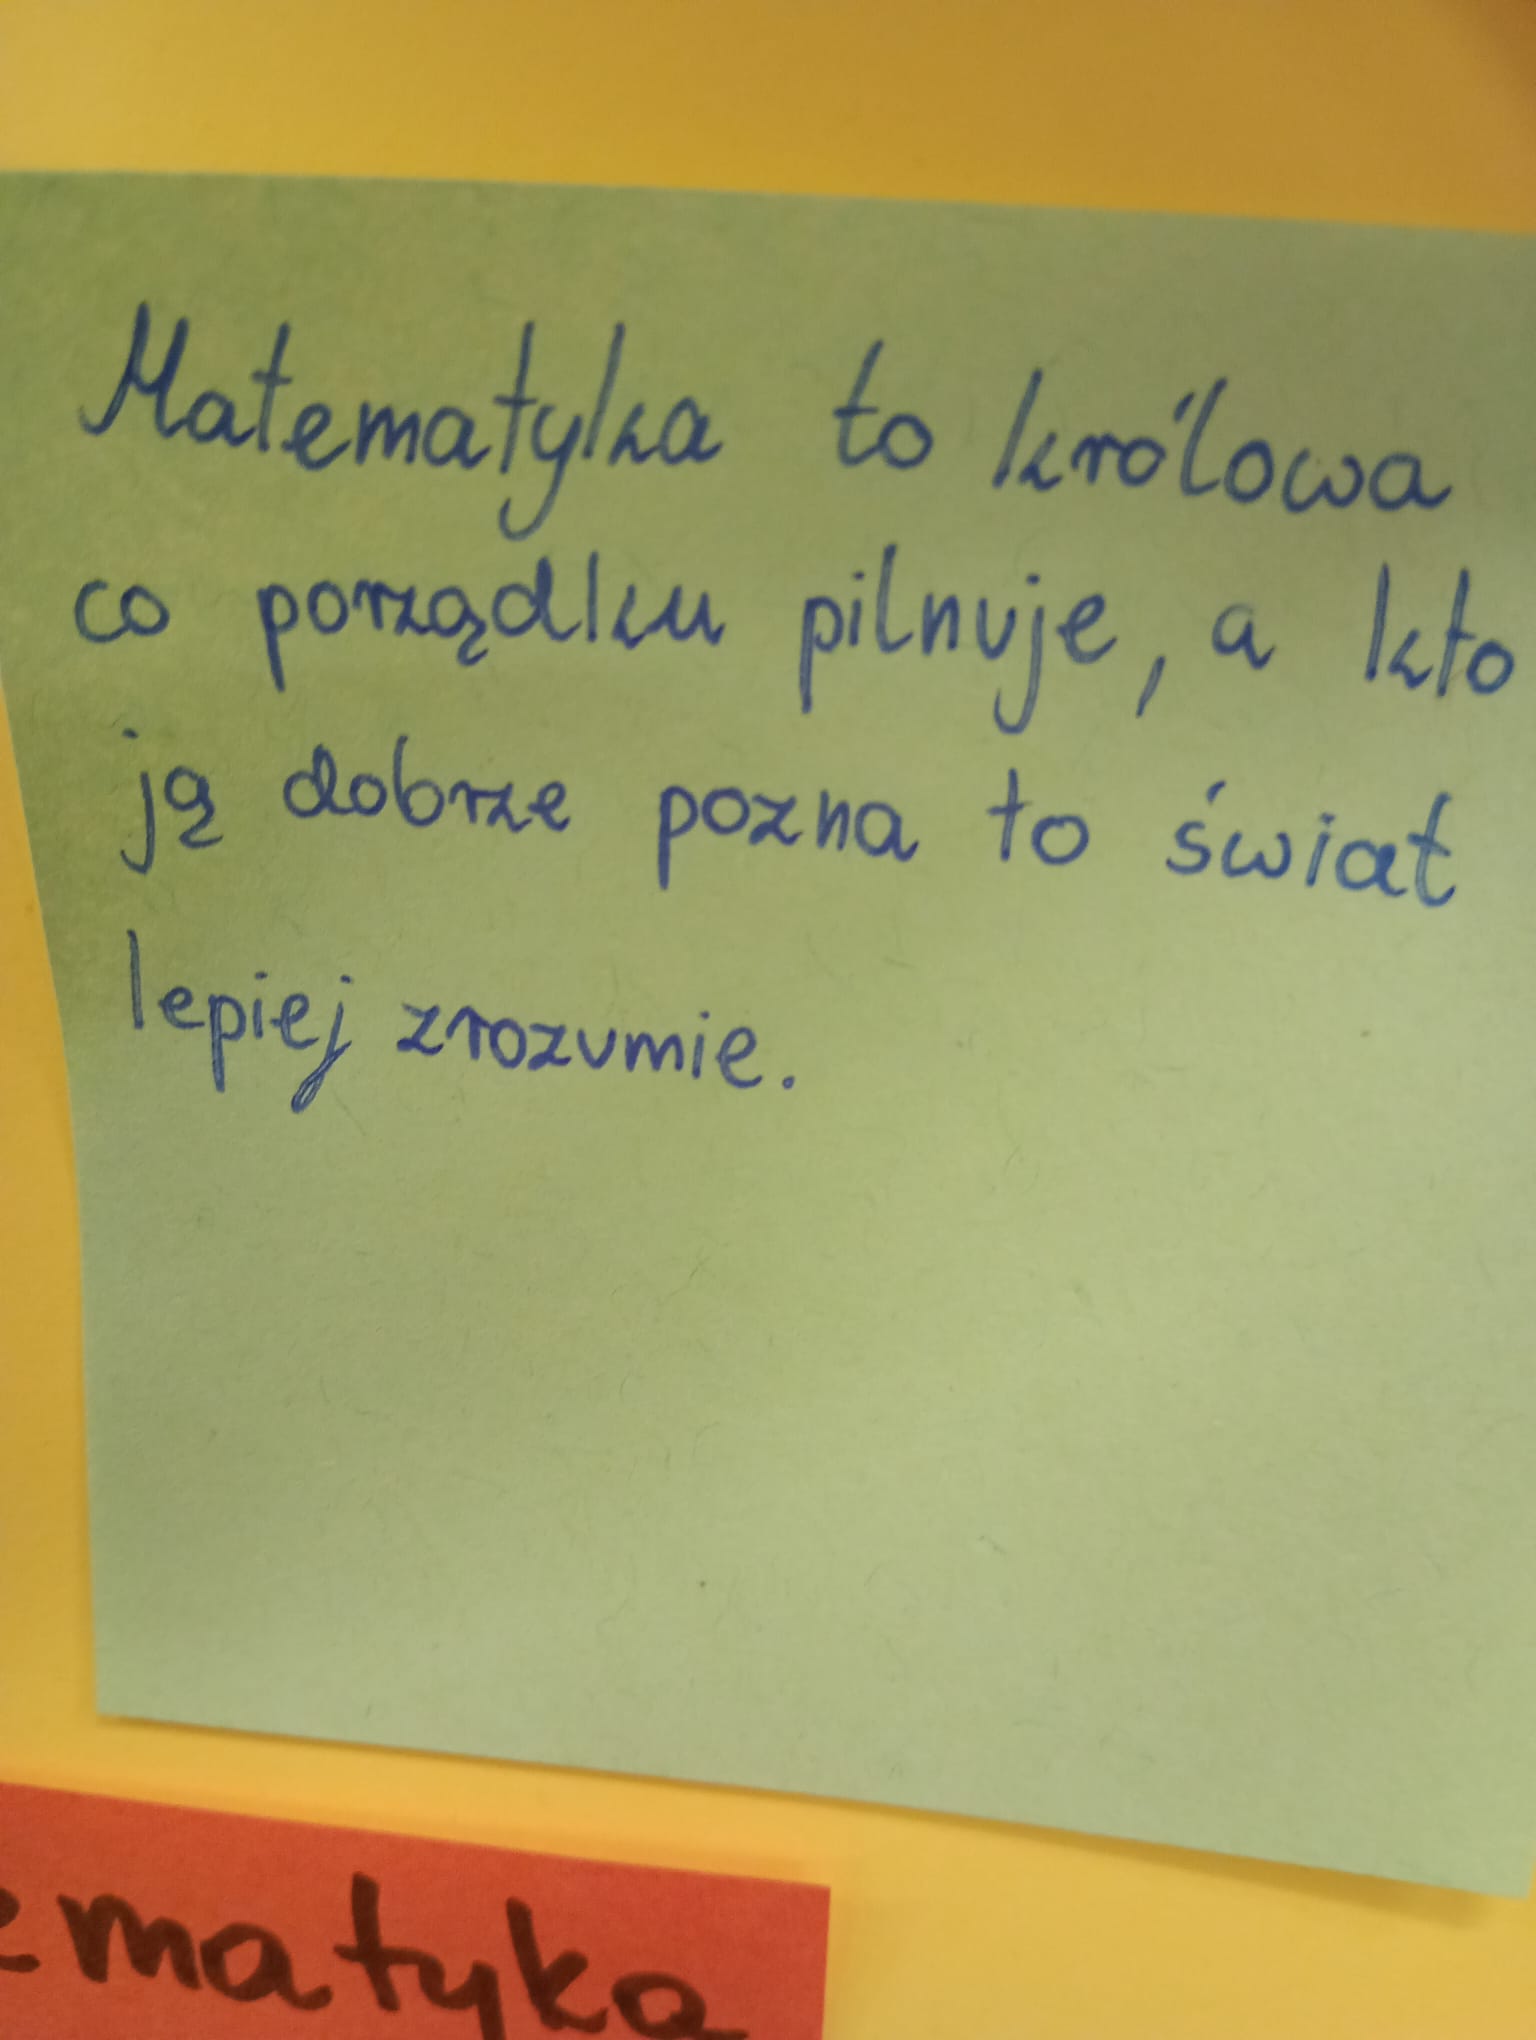 Matematyka to królowa
co porządku pilnuje, a kto
ją dobrze pozna to świat
lepiej zrozumie.
ematyka